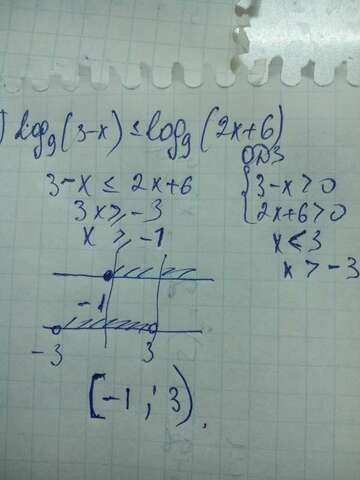 ) log₉(3-x) ≤ log₉(2x+6)
ОДЗ
3-x ≤ 2x+6
3x ≥ -3
x ≥ -1
{3-x>0
2x+6>0
x<3
x > -3
-1
-3 3
[-1 ; 3).